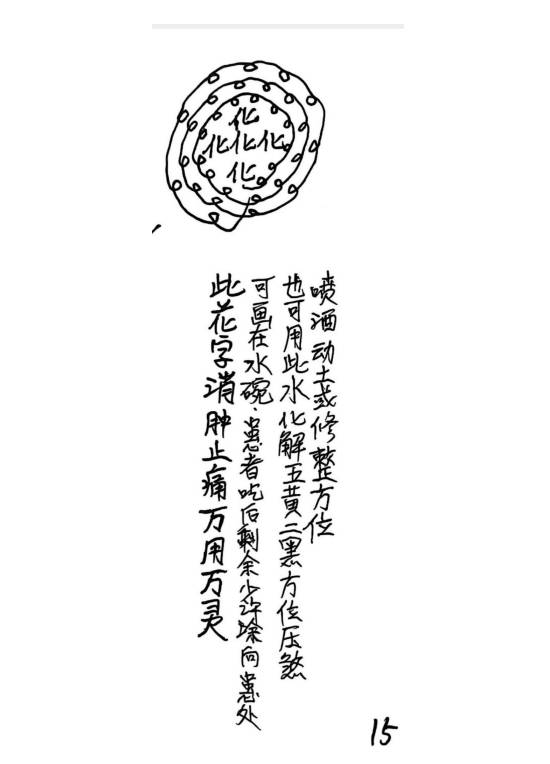 化
化化化
化
此花字消肿止痛万用万灵
可画在水碗.患者吃后剩余少许向患处
也可用此水化解五黄二黑方位压煞
喷洒动土或修整方位
15